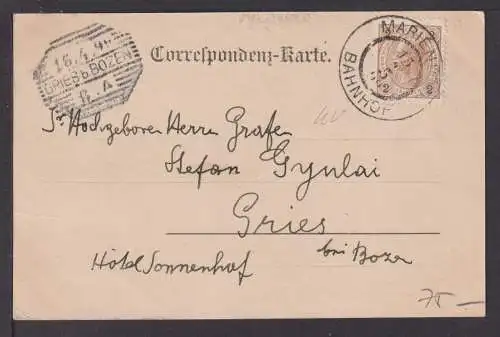 16.4.9
GRIES b. BOZEN
A
MARIE
BAHNHOF
Correspondenz-Karte.
Sr Hochgeboren Herrn Grafen
Stefan Gyulai
Gries
bei Bozen
Hôtel Sonnenhof
75 –